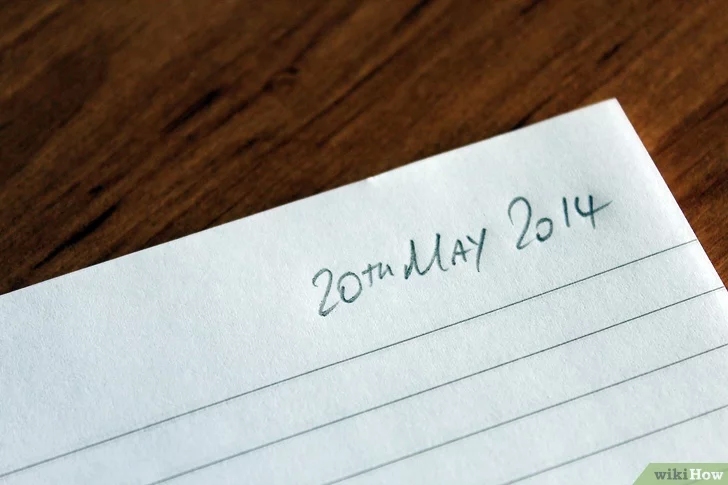 20th MAY 2014
wikiHow